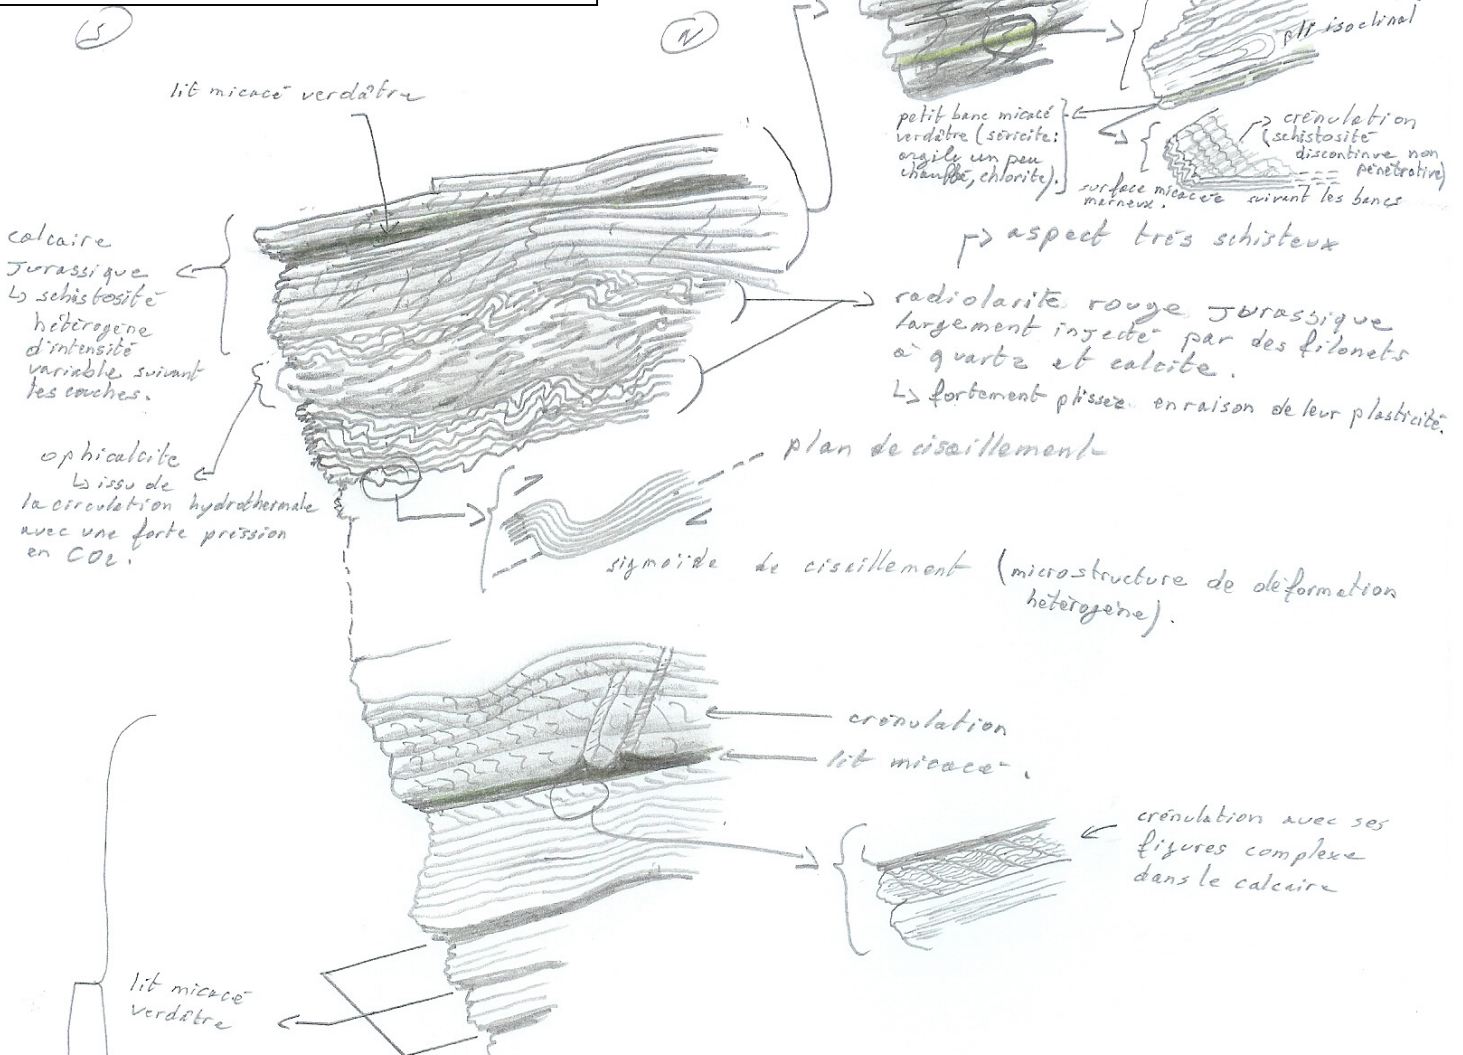 S
N
pli isoclinal
lit micacé verdâtre
petit banc micacé
verdâtre (séricite:
argile un peu
chauffé, chlorite).
crénulation
(schistosité
discontinue non
pénétrative)
surface micacée suivant les bancs
marneux.
aspect très schisteux
calcaire
Jurassique
↳ schistosité
hétérogène
d'intensité
variable suivant
les couches.
radiolarite rouge Jurassique
largement injecté par des filonets
à quartz et calcite.
↳ fortement plissez en raison de leur plasticité.
ophicalcite
↳ issu de
la circulation hydrothermale
avec une forte pression
en CO2.
plan de cisaillement
sigmoïde de cisaillement (microstructure de déformation
hétérogène).
crénulation
lit micacé.
crénulation avec ses
figures complexe
dans le calcaire
lit micacé
verdâtre